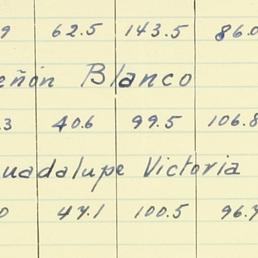 9 62.5 143.5 86.0
eñón Blanco
.3 40.6 99.5 106.8
uadalupe Victoria
0 47.1 100.5 96.4